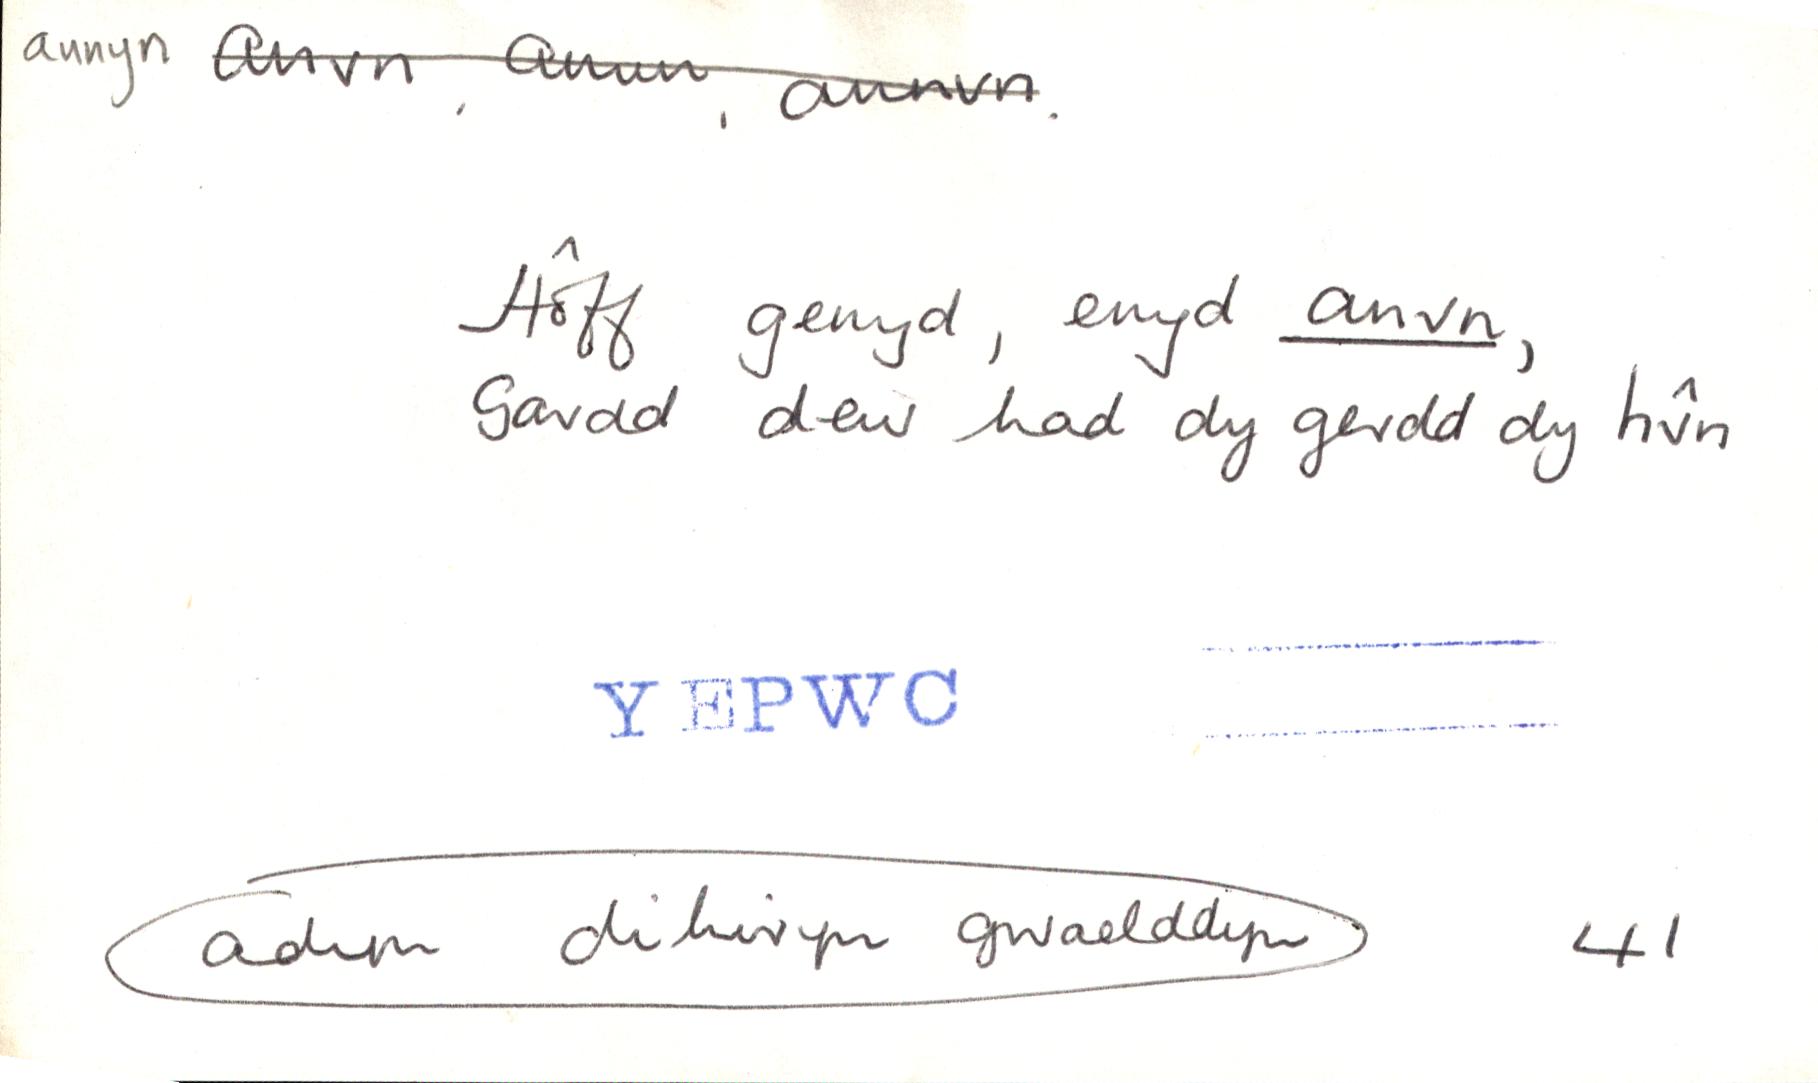 annyn anvn, anun, annvn.
Hôff genyd, enyd anvn,
Gardd dew had dy gerdd dy hŷn
YEPWC
adyn dihiryn gwaelddyn 41